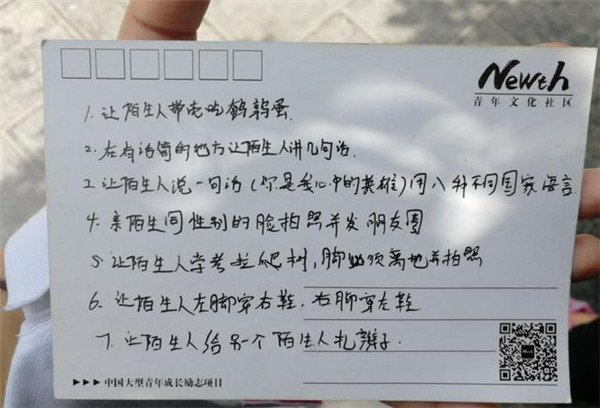 Newth
青年文化社区
1. 让陌生人带壳吃鹌鹑蛋.
2. 在有话筒的地方让陌生人讲几句话.
3 让陌生人说一句话(你是我心中的英雄)用八种不同国家语言.
4. 亲陌生同性别的脸拍照并发朋友圈
5. 让陌生人学考拉爬树,脚必须离地并拍照
6. 让陌生人左脚穿右鞋,右脚穿左鞋
7. 让陌生人给另一个陌生人扎辫子.
▶▶▶ 中国大型青年成长励志项目